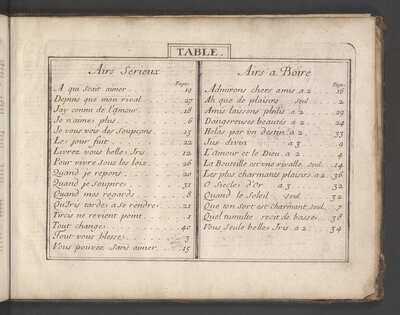 TABLE.
Airs Serieux
Page.
A qui Scait aimer. 19
Depuis que mon rival. 27
Jay connu de l'amour. 18
Je n'aime plus. 6
Je vous vois des Soupçons. 23
Le jour fuit. 22
Livrez vous belle Iris. 12
Pour vivre sous les loix. 26
Quand je repons. 20
Quand je Soupire. 31
Quand mes regards. 8
Qu'Iris tarde a se rendre. 21
Tircis ne revient point. 1
Tout change. 40
Tout vous blesse. 3
Vous pouvez Sans aimer. 15
Airs a Boire
Page.
Admirons chers amis a 2. 16
Ah que de plaisirs seul. 2
Amis laissons phtlis a 2. 29
Dangereuses beautés a 2. 24
Helas par un destin. a 2. 33
Jus divin a 3. 9
L'Amour et le Dieu. a 2. 4
La Bouteille est ma rivalle. seul. 14
Les plus charmants plaisirs. a 2. 36
O Siecles d'Or a 3. 32
Quand le Soleil seul. 32
Que ton sort est charmant. seul. 7
Quel tumulte recit de basse. 38
Vous Seule belle Iris. a 2. 34